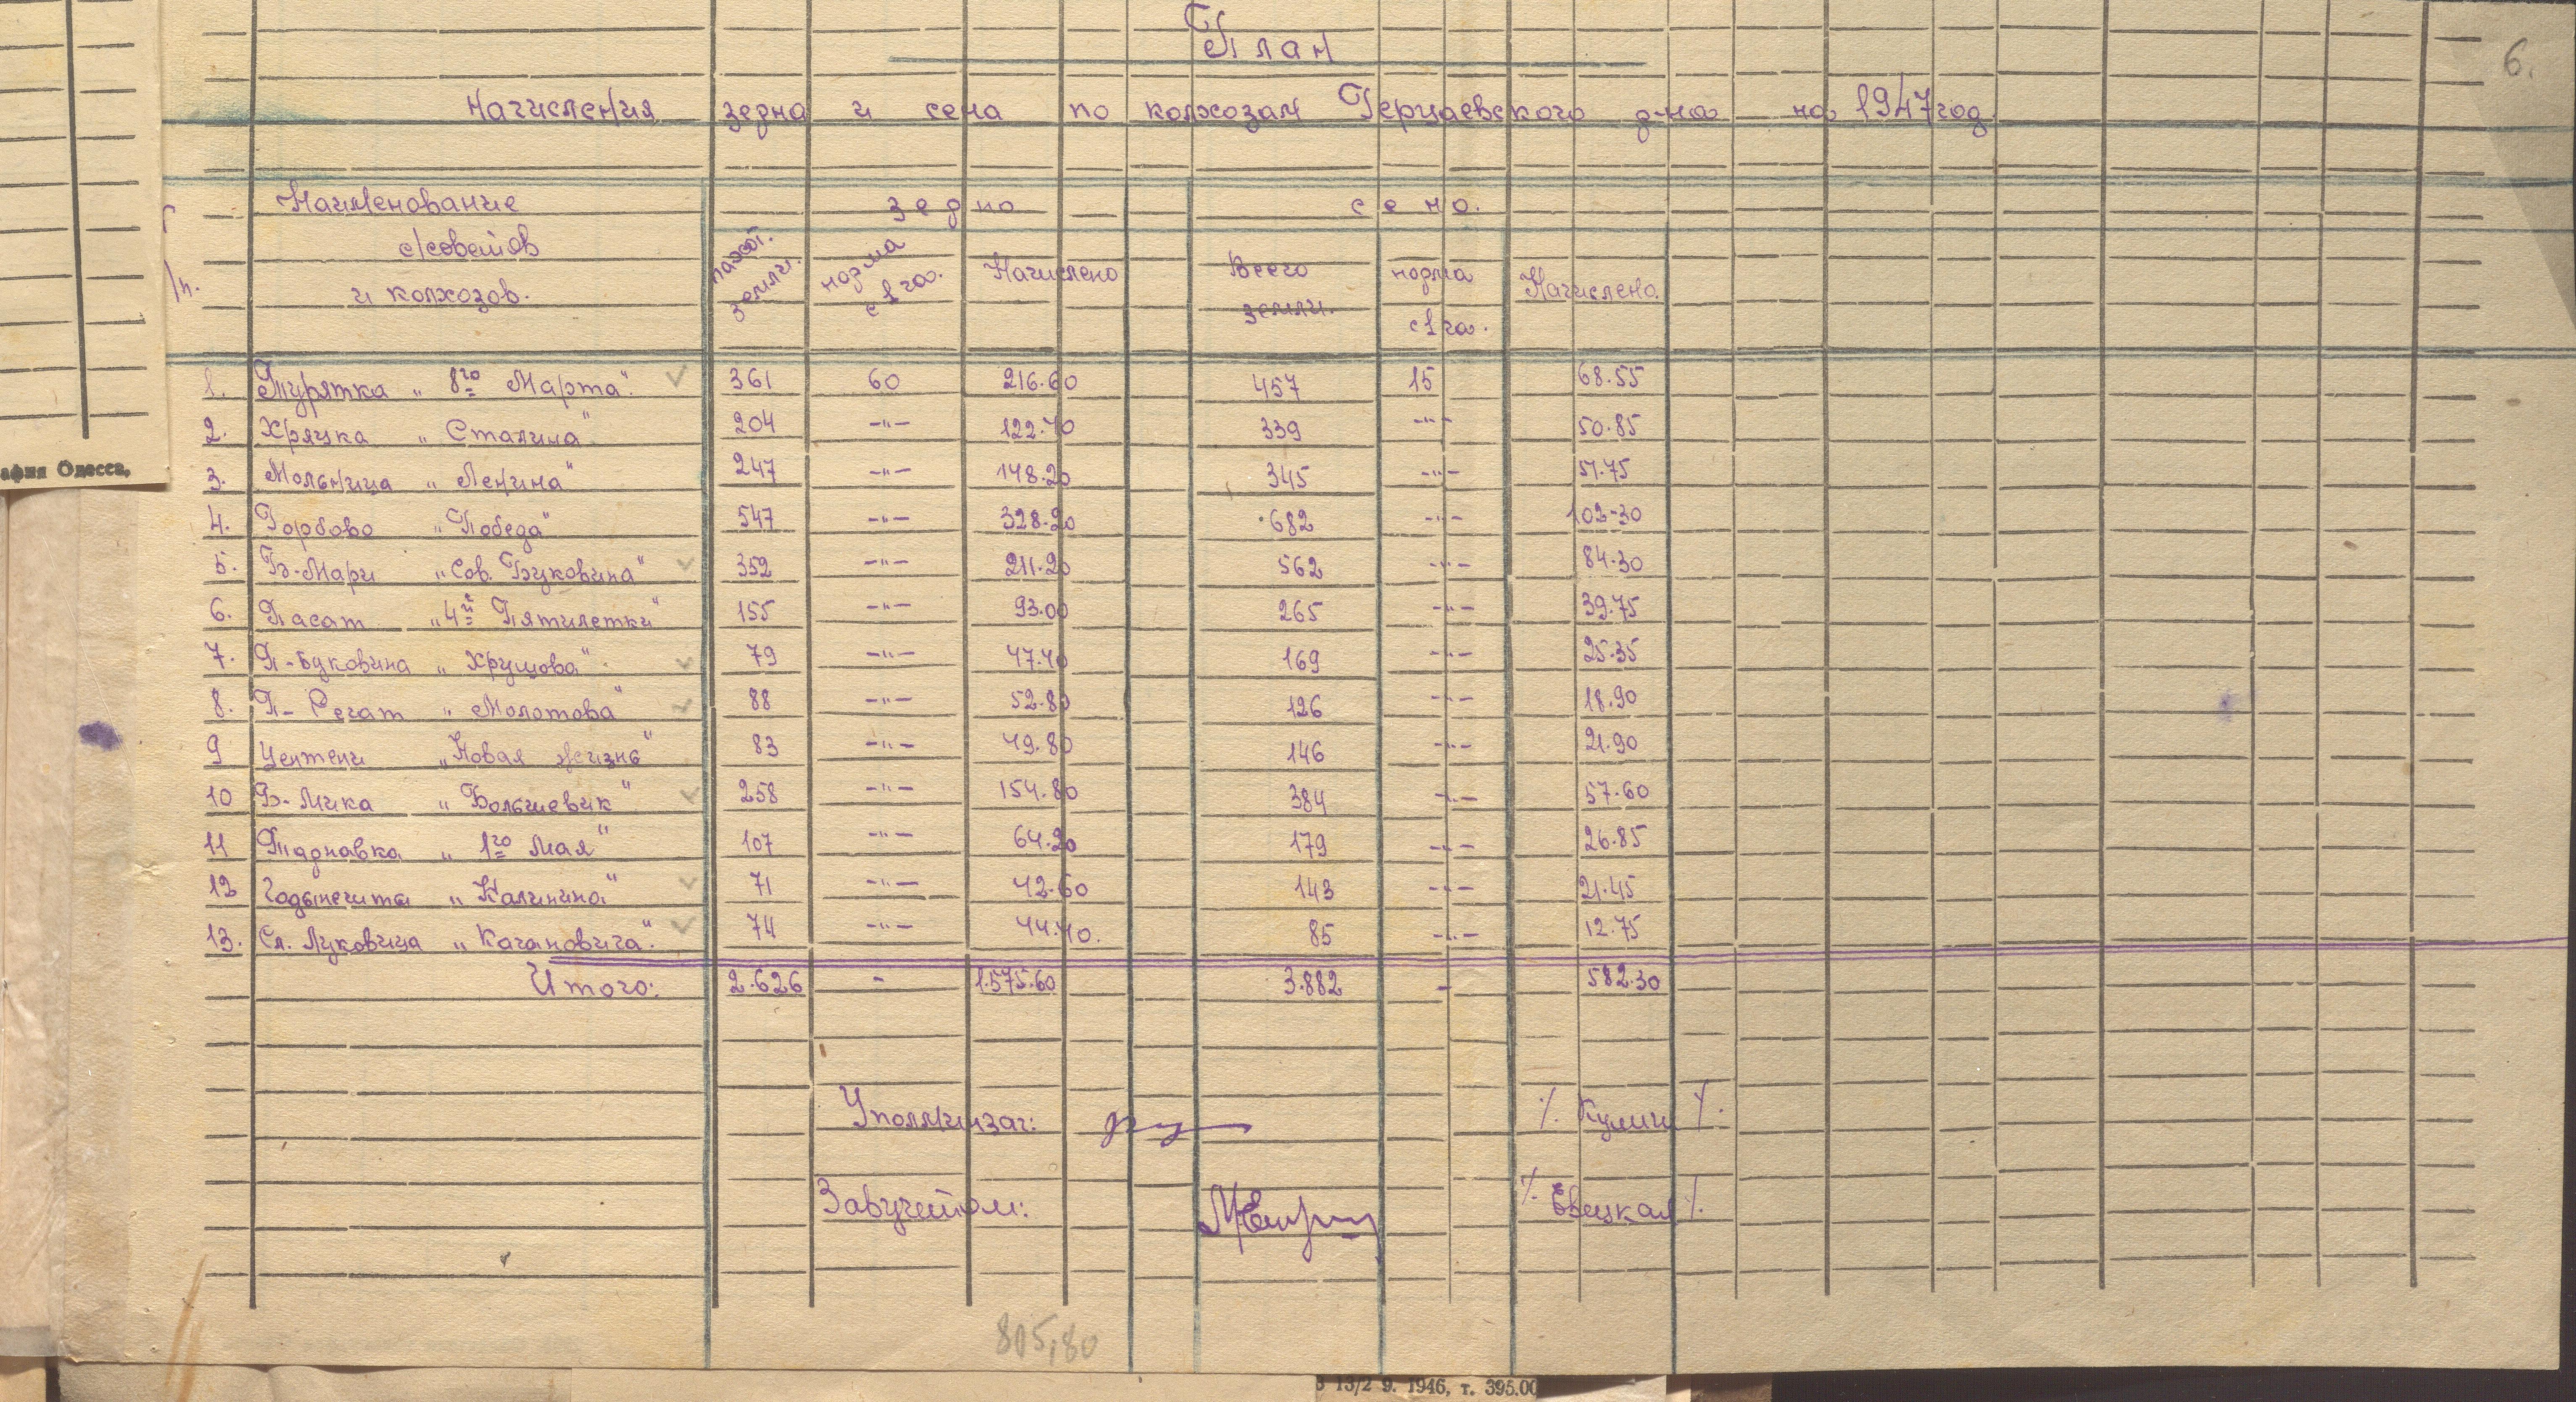 План
6.
Начисления зерна и сена по колхозам Герцаевского р-на на 1947 год
Наименование с/советов и колхозов. зерно сено.
пахот. земли. норма с 1 га. Начислено Всего земли. норма с 1 га. Начислено
1. Турятка „8го Марта". 361 60 216.60 457 15 68.55
2. Хряцка „Сталина" 204 -"- 122.40 339 -"- 50.85
3. Мольница „Ленина" 247 -"- 148.20 345 -"- 51.75
4. Горбово „Победа" 547 -"- 328.20 682 -"- 102-30
5. Б-Мари „Сов. Буковина" 352 -"- 211.20 562 -"- 84.30
6. Пасат „4й Пятилетки" 155 -"- 93.00 265 -"- 39.75
7. П-Буковина „Хрущова". 79 -"- 47.40 169 -"- 25.35
8. П-Регат „Молотова" 88 -"- 52.80 126 -"- 18.90
9 Центени „Новая жизнь" 83 -"- 49.80 146 -"- 21.90
10 Б-Мика „Большевик" 258 -"- 154.80 384 -"- 57.60
11 Тарнавка „1го Мая" 107 -"- 64.20 179 -"- 26.85
12 Годынешты „Калинина" 71 -"- 42.60 143 -"- 21.45
13. Сл. Луковица „Кагановича". 74 -"- 44.40. 85 -"- 12.75
Итого: 2.626 - 1.575.60 3.882 - 582.30
Уполминзаг:
Завучетом:
805,80
афия Одесса,
13/2 9. 1946, т. 395.00